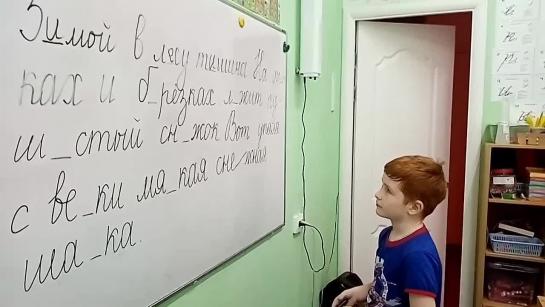 Зимой в лесу тишина На
ках и б_розках л_жит пу
ш_стый сн_жок Вот упала
с ве_ки мя_кая снежная
ша_ка.